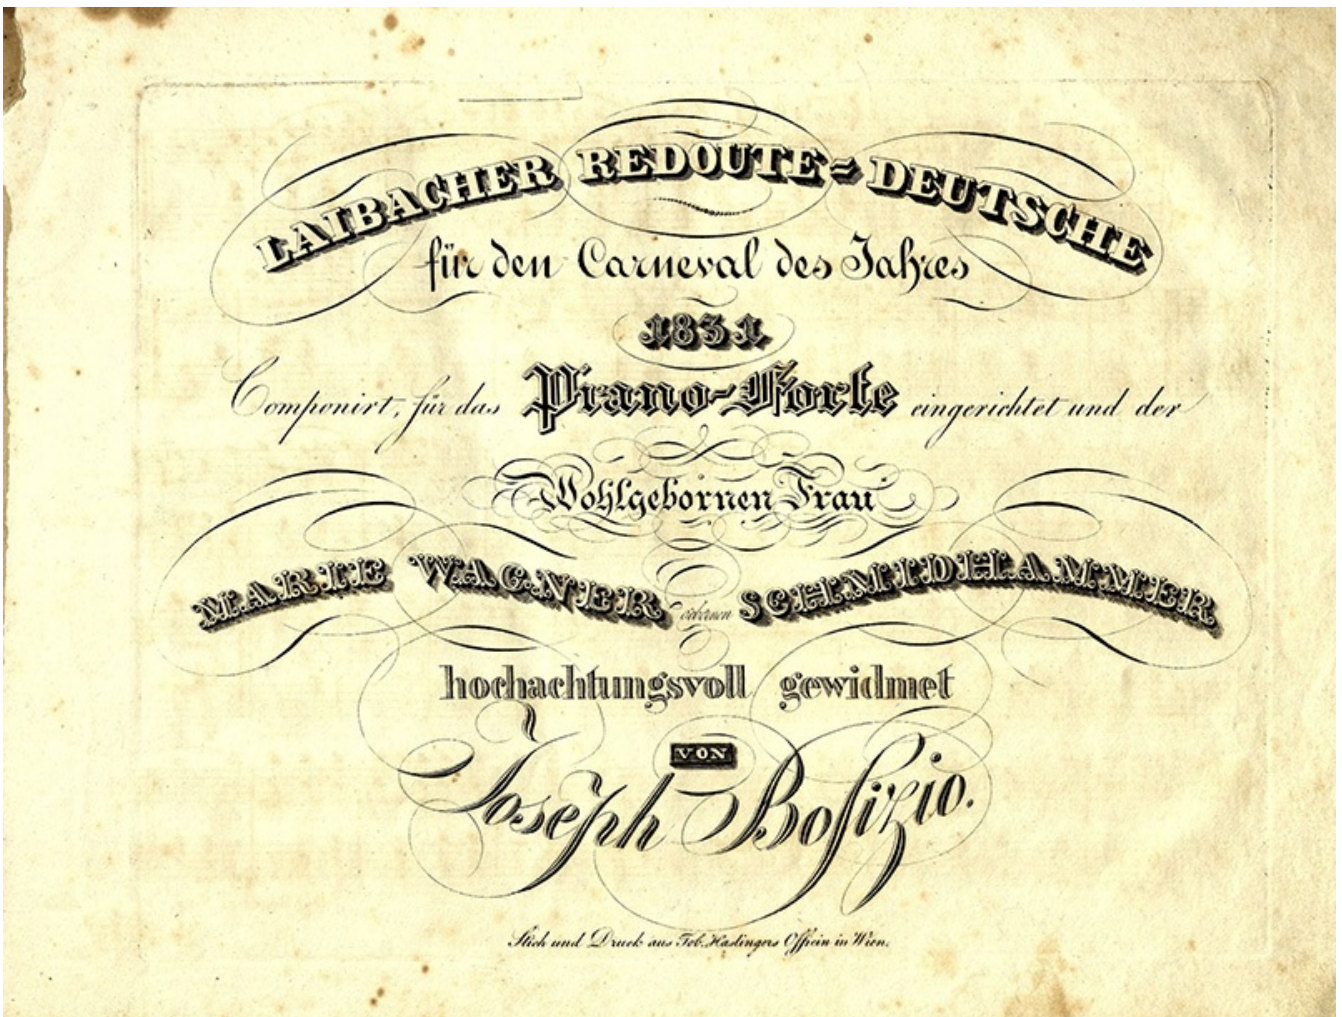 LAIBACHER REDOUTE=DEUTSCHE
für den Carneval des Jahres
1831
Componirt, für das Piano-Forte eingerichtet und der
Wohlgebornen Frau
MARIE WAGNER Gebornen SCHMIDHAMMER
hochachtungsvoll gewidmet
VON
Joseph Bosizio.
Stich und Druck aus Tob. Haslingers Officin in Wien.